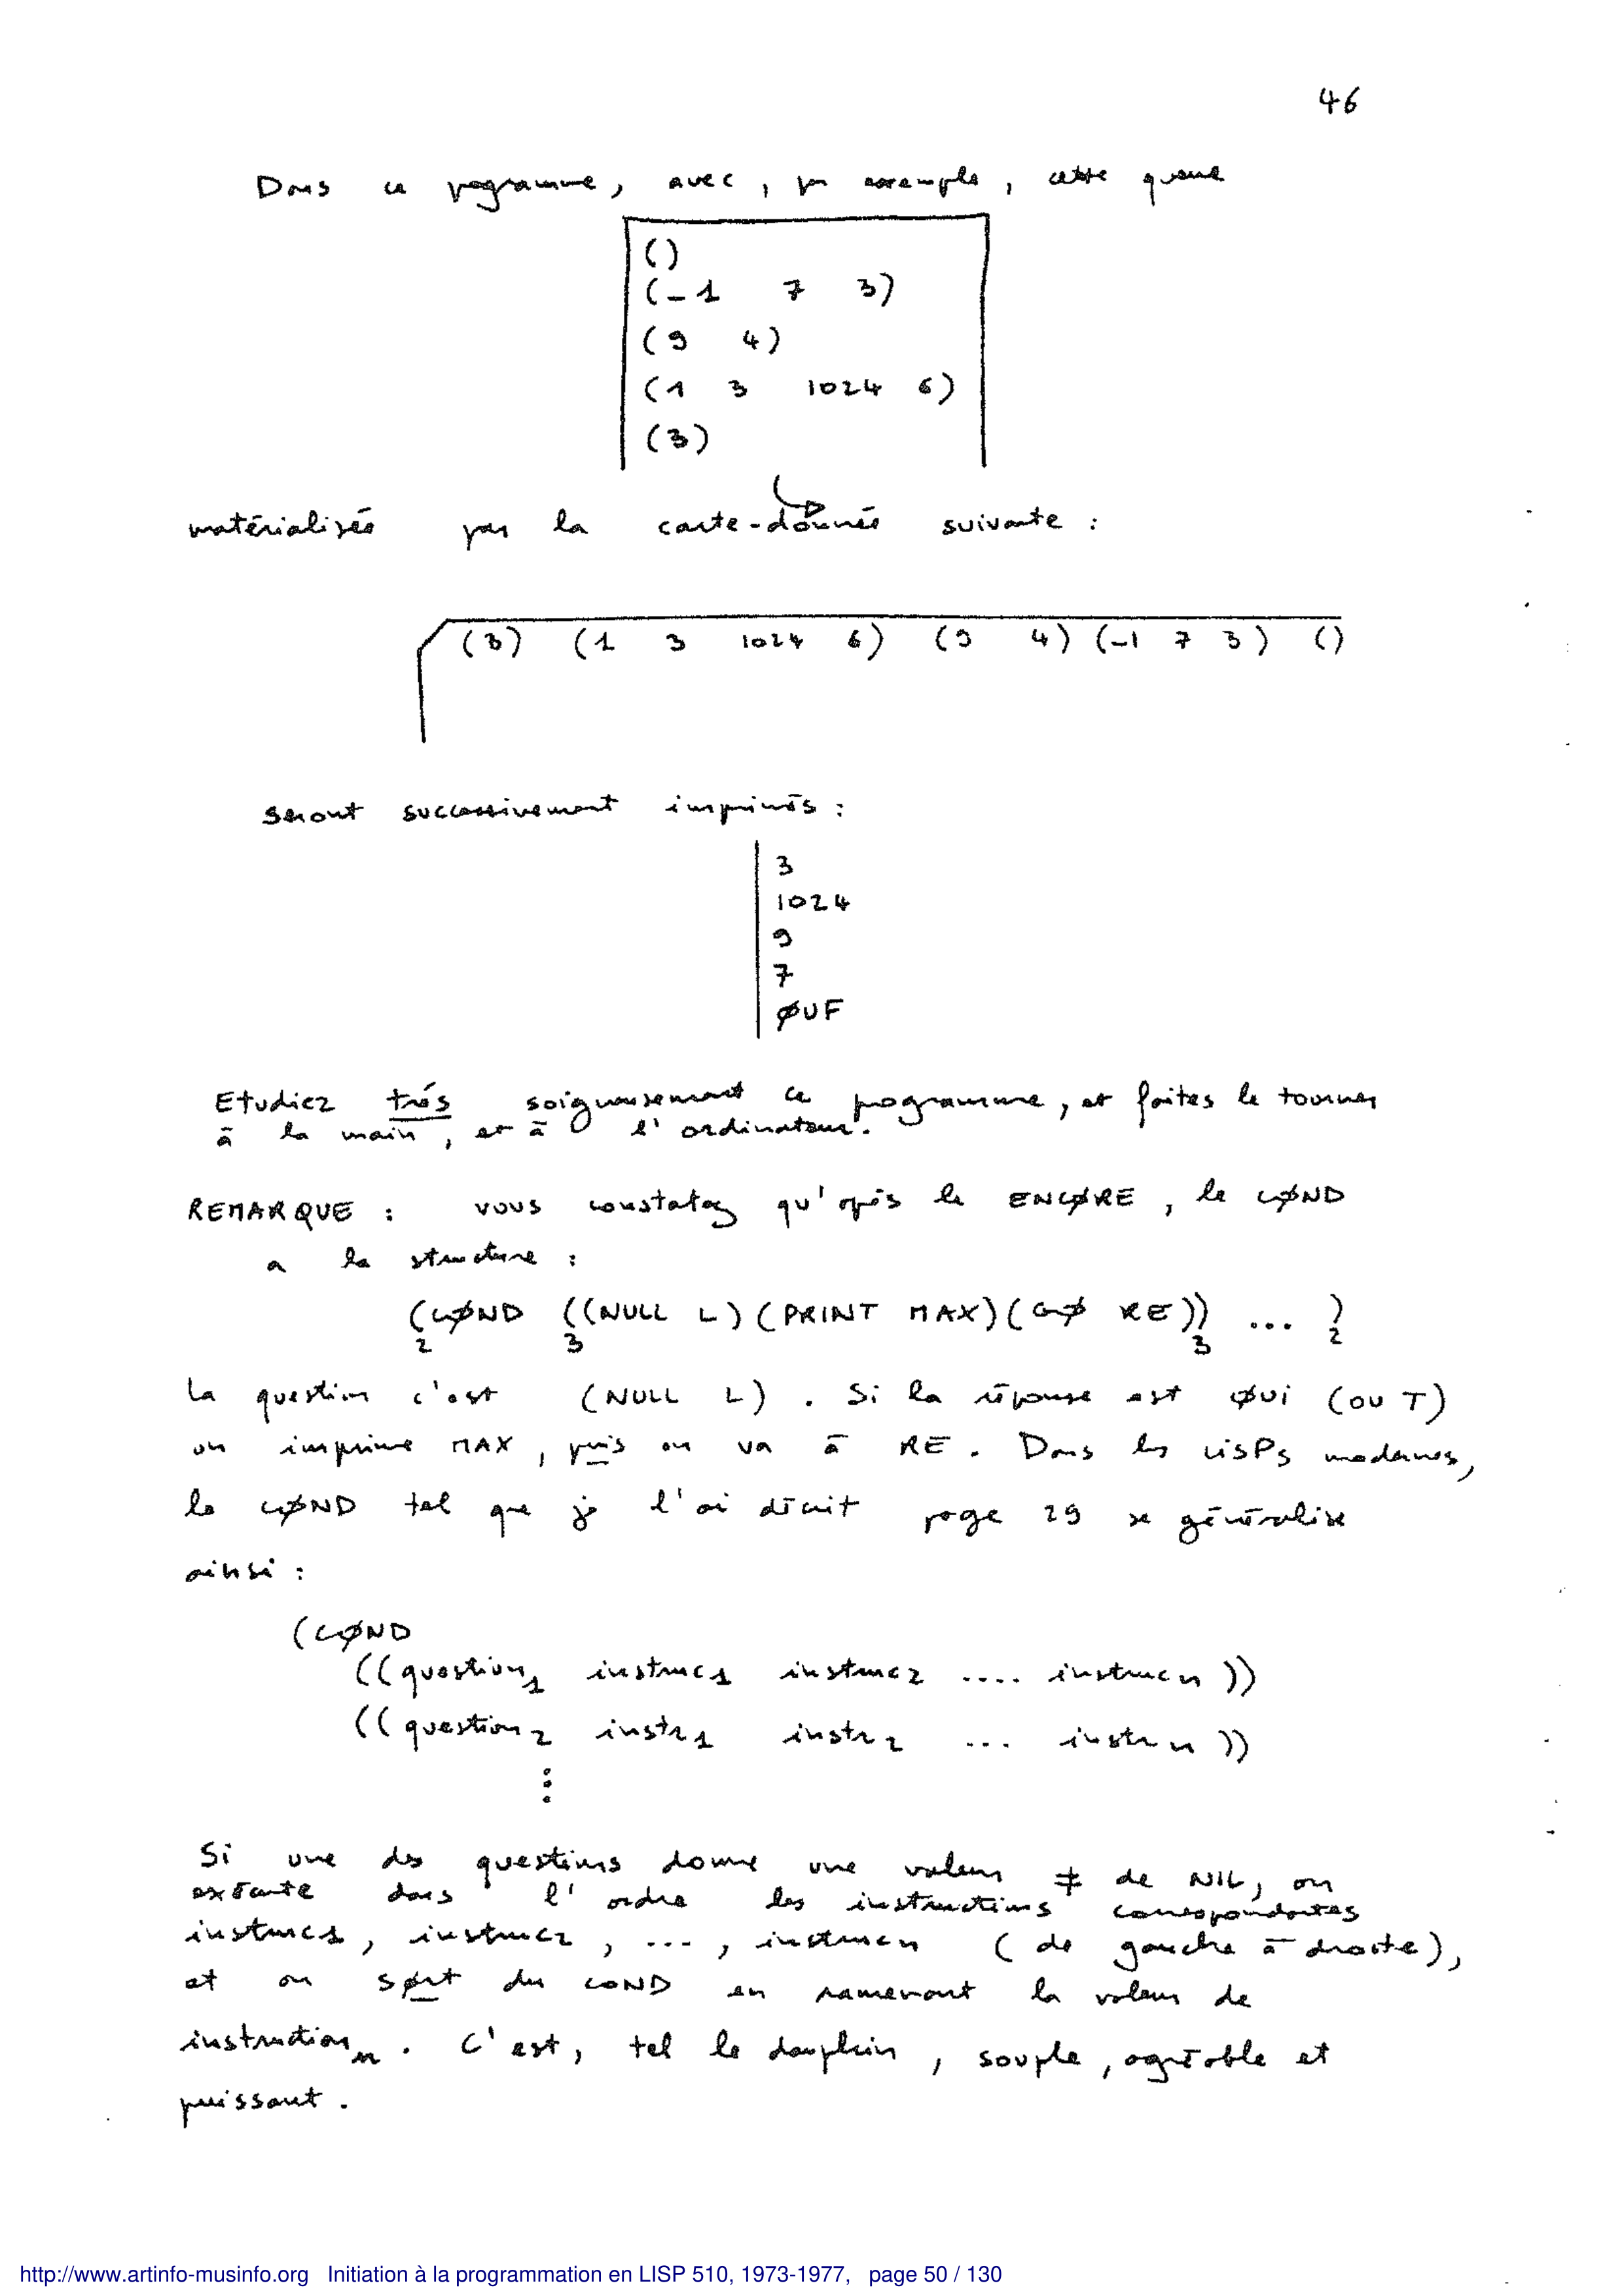 46
Dans ce programme, avec, par exemple, cette queue
()
(-1 7 3)
(9 4)
(1 3 1024 6)
(3)
matérialisée par la carte-donnée suivante :
(3) (1 3 1024 6) (9 4) (-1 7 3) ()
seront successivement imprimés :
3
1024
9
7
ØUF
Etudiez très soigneusement ce programme, et faites le tourner
à la main, et à l'ordinateur.
REMARQUE : vous constatez qu'après le ENCØRE, le CØND
a la structure :
(CØND ((NULL L) (PRINT MAX) (GØ RE)) ... )
2 3 3 2
La question c'est (NULL L). Si la réponse est ØUI (OU T)
on imprime MAX, puis on va à RE. Dans les LISPs modernes,
le CØND tel que je l'ai décrit page 29 se généralise
ainsi :
(CØND
((question1 instruc1 instruc2 .... instrucn ))
((question2 instr1 instr2 ... instrn ))
⋮
Si une des questions donne une valeur ≠ de NIL, on
exécute dans l'ordre les instructions correspondantes
instruc1, instruc2, ..., instrucn (de gauche à droite),
et on sort du COND en ramenant la valeur de
instructionn. C'est, tel le dauphin, souple, agréable et
puissant.
http://www.artinfo-musinfo.org Initiation à la programmation en LISP 510, 1973-1977, page 50 / 130